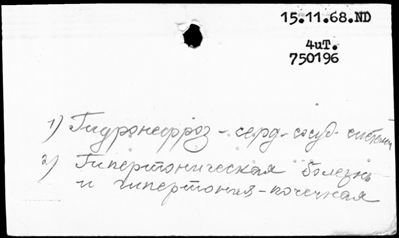 15.11.68.ND
4иТ.
750196
1) Гидронефроз - серд-сосуд. системы
2) Гипертоническая болезнь
и гипертония - почечная